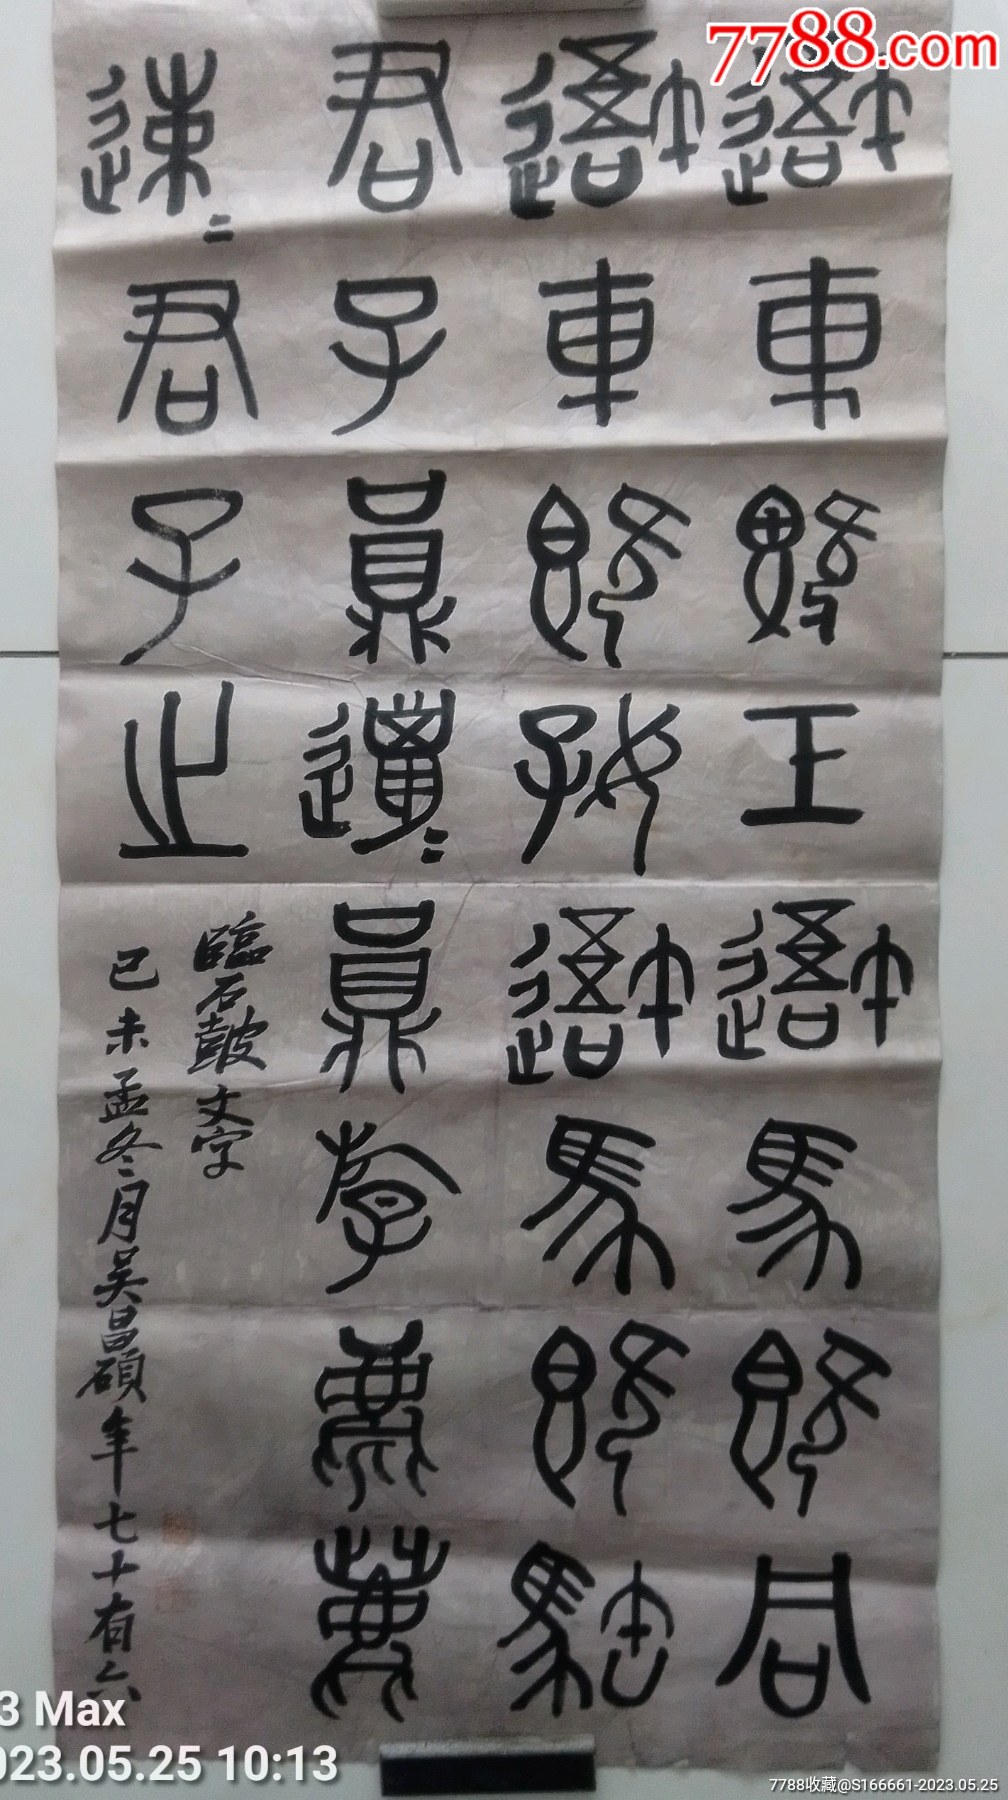 7788.com
吾車既工吾馬既同
吾車既好吾馬既騊
君子員邋=員斿麀鹿
速=君子之
臨石鼓文字
己未孟冬月吳昌碩年七十有六
3 Max
023.05.25 10:13
7788收藏@S166661-2023.05.25